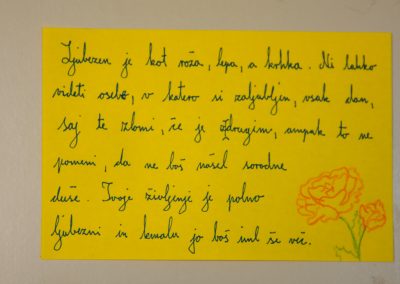 Ljubezen je kot roža, lepa, a krhka. Ni lahko
videti osebe, v katero si zaljubljen, vsak dan,
saj te zlomi, če je z drugim, ampak to ne
pomeni, da ne boš našel sorodne
duše. Tvoje življenje je polno
ljubezni in kmalu jo boš imel še več.